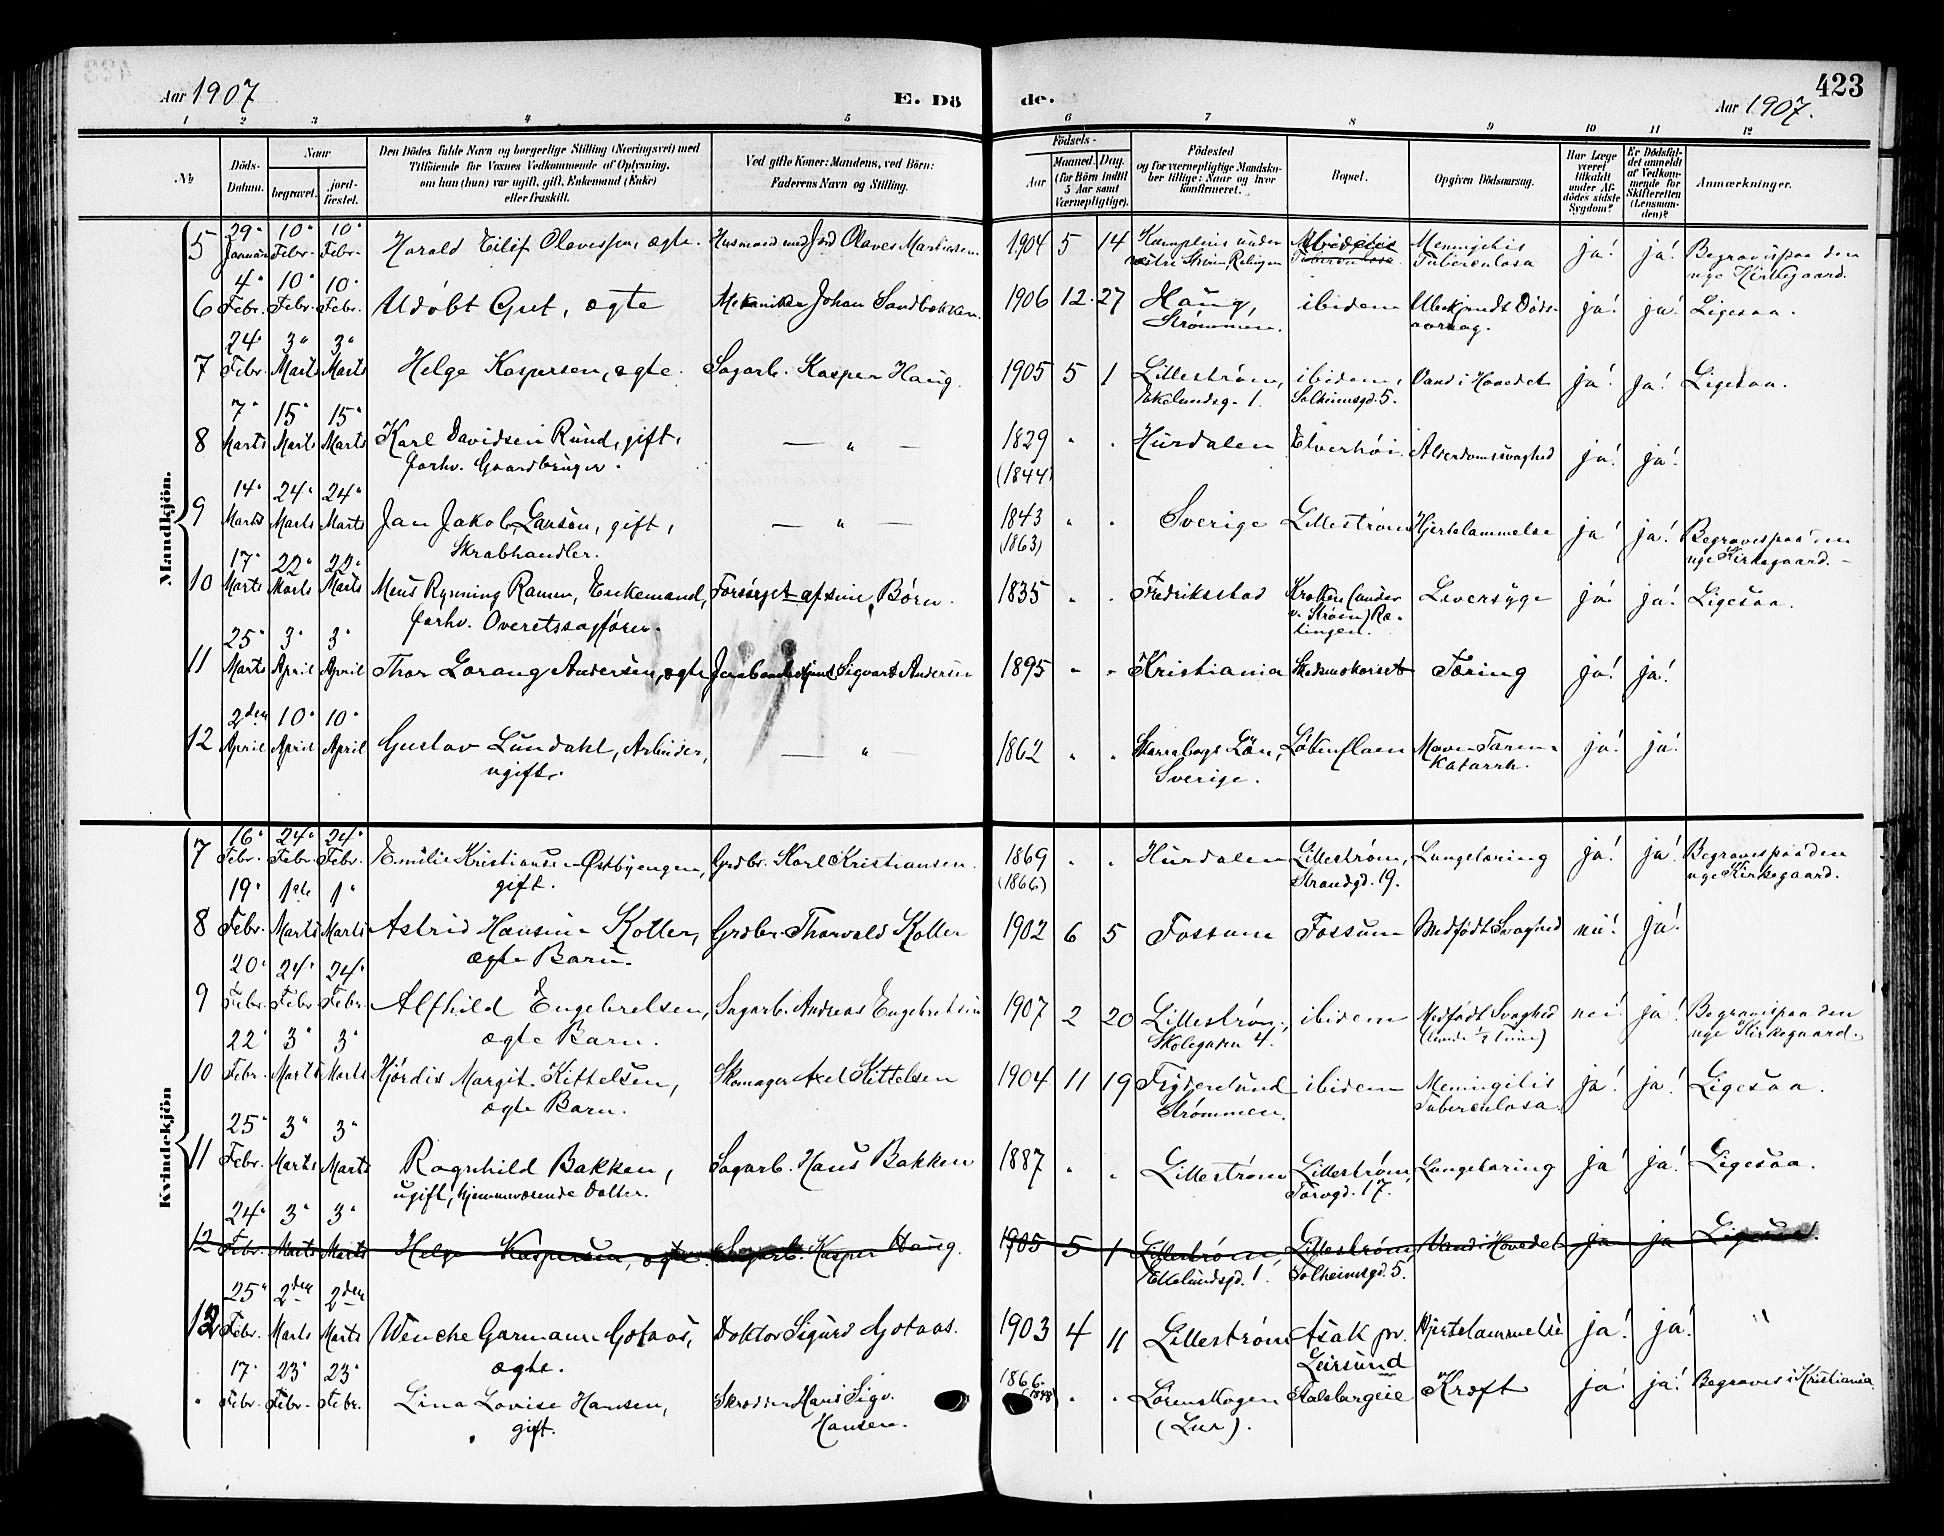 Aar 1907
E. Dö
de.
Aar 1907.
423
1 2 3 4 5 6 7 8 9 10 11 12
No
Döds-Datum.
Naar
begravet.
jord-fæstet.
Den Dödes fulde Navn og borgerlige Stilling (Næringsvei) med
Tilföiende for Voxnes Vedkommende af Oplysning,
om han (hun) var ugift, gift, Enkemand (Enke)
eller fraskilt.
Ved gifte Koner: Mandens, ved Börn:
Faderens Navn og Stilling.
Födsels-
Aar
Maaned. Dag.
(for Börn indtil
5 Aar samt
Værnepligtige).
Födested
og for værnepligtige Mandskaber tillige: Naar og hvor konfirmeret.
Bopæl.
Opgiven Dödsaarsag.
Har Læge været tilkaldt under Afdödes sidste Sygdom?
Er Dödsfaldet anmeldt af Vedkommende for Skifteretten (Lensmanden)?
Anmærkninger.
Mandkjön.
5 29. Januar 10. Febr. 10. Febr. Harald Eilif Olavessen, ægte. Husmand med Jord Olaves Martinsen 1904 5 14 under østre Strøm, Relingen Meningitis Tuberculosa ja! ja! Begraves paa den nye Kirkegaard.
6 4. Febr. 10. Febr. 10. Febr. Udøbt Gut, ægte Mekaniker Johan Sandbækken 1906 12. 27 Haug, Strømmen. ibidem Ubekjendt Dødsaarsag. ja! ja! Ligesaa.
7 24. Febr. 3. Marts 3. Marts Helge Kaspersen, ægte. Sagarb. Kasper Haug. 1905 5 1 Lillestrøm, Ekelundsg. 1. ibidem, Solheimsgd. 5. Vand i Hovedet ja! ja! Ligesaa.
8 7. Marts 15. Marts 15. Marts Karl Davidsen Rund, gift, forhv. Gaardbruger. — " — 1829 (1844) " " Hurdalen Elverhøi Alderdomssvaghed ja! ja!
9 14. Marts 24. Marts 24. Marts Jan Jakob Larsen, gift, Skrabhandler. — " — 1843 (1863) " " Sverige Lillestrøm Hjertelammelse ja ja! Begraves paa den nye Kirkegaard.
10 17. Marts 22. Marts 22. Marts Mens Rynning Ramm, Enkemand, forhv. Overetssagfører. Forsørget af sine Børn. 1835 " " Fredriksstad Kroken (under v. Strøm) Rælingen. Leversyge ja! ja! Ligesaa.
11 25. Marts 3. April 3. April Thor Gorang Andersen, ægte Sigvart Andersen 1895 " " Kristiania Skedsmokorset Tæring ja! ja!
12 2den April 10. April 10. April Gustav Lundahl, Arbeider, ugift. — " — 1862 " " Skaraborgs Län, Sverige. Løkenflaen Mave-Tarmkatarrh. ja! ja!
Kvindekjön
7 16. Febr. 24. Febr. 24. Febr. Emilie Kristiansen Østbyengen, gift. Grdbr. Karl Kristiansen. 1869 (1866) " " Hurdalen Lillestrøm, Strandgd. 19. Lungetæring ja! ja! Begraves paa den nye Kirkegaard.
8 19. Febr. 1ste Marts 1. Marts Astrid Hansine Koller, ægte Barn. Grdbr. Thorvald Koller 1902 6 5 Fossum Fossum Medfødt Svaghed nei! ja!
9 20. Febr. 24. Febr. 24. Febr. Alfhild Engebretsen, ægte Barn. Sagarb. Andreas Engebretsen 1907 2 20 Lillestrøm, Skolegaden 4. ibidem Medfødt Svaghed (levede 1/2 Time) nei! ja! Begraves paa den nye Kirkegaard.
10 22. Febr. 3. Marts 3. Marts Hjørdis Margit Kittelsen, ægte Barn. Skomager Axel Kittelsen 1904 11 19 Frydenlund Strømmen. ibidem Meningitis Tuberculosa. ja! ja! Ligesaa.
11 25. Febr. 3. Marts 3. Marts Ragnhild Bakken, ugift, hjemmeværende Datter. Sagarb. Hans Bakken 1887 " " Lillestrøm Lillestrøm, Torvgd. 17. Lungetæring ja! ja! Ligesaa.
12 24. Febr. 3. Marts 3. Marts Helge Kaspersen, ægte. Sagarb. Kasper Haug. 1905 5 1 Lillestrøm Ekelundsgd. 1. Lillestrøm, Solheimsgd. 5. Vand i Hovedet ja ja Ligesaa.
12 25. Febr. 2den Marts 2den Marts Wenche Garmann Gotaas, ægte. Doktor Sigurd Gotaas. 1903 4 11 Lillestrøm Asak pr. Leirsund Hjertelammelse ja! ja! "
" 17. Febr. 23. Febr. 23. Febr. Lina Lovise Hansen, gift. Skrædder Hans Sigv. Hansen. 1866. " " Lørenskogen (Lur). Stalsbergeie Kræft ja! ja! Begraves i Kristiania